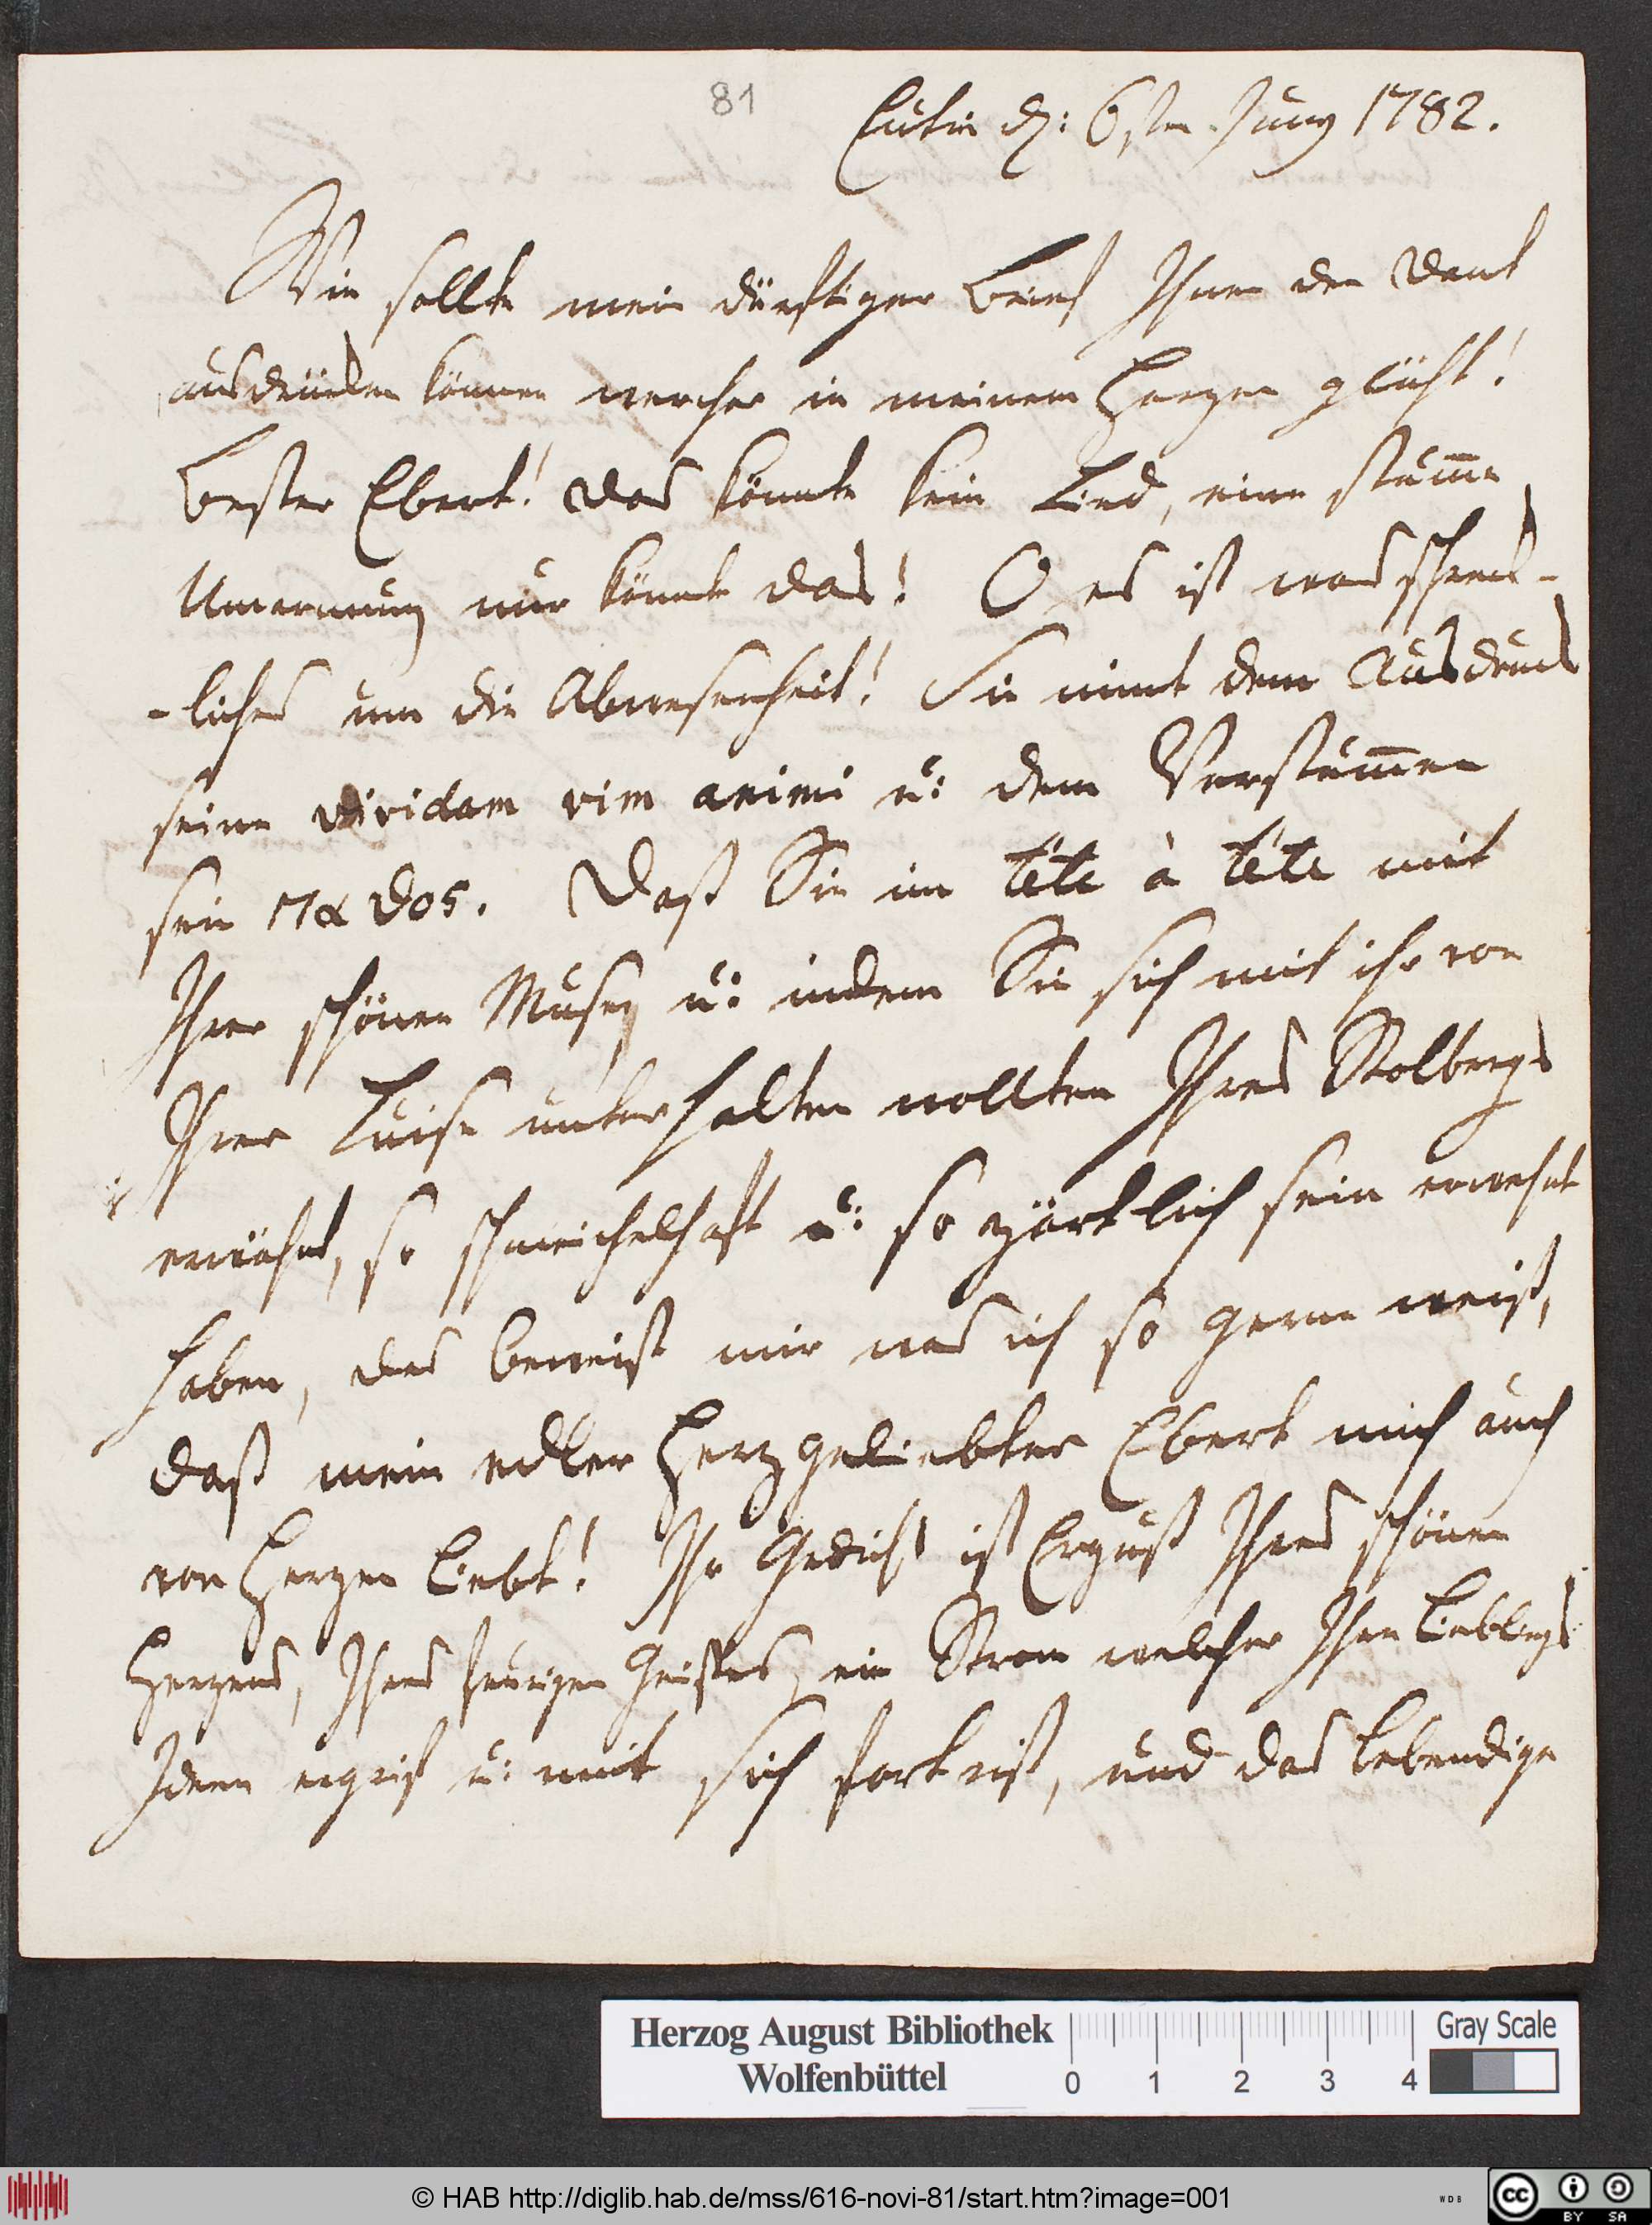 81
Eutin d: 6sten Juny 1782.
Wie sollte mein dürftiger Brief Ihnen den Dank
ausdrücken können welcher in meinem Herzen glüht!
bester Ebert! das könnte kein Lied, eine stum̅e
Umarmung nur könnte das! O es ist was schreck-
-liches um die Abwesenheit! Sie nimt dem Ausdruck
seine vividam vim animi u: dem Verstum̅en
sein παθος. Daß Sie im tête à tête mit
Ihrer schönen Muse, u: indem Sie sich mit ihr von
Ihrer Luise unterhalten wollten Ihres Stolbergs
erwähnt, so schmeichelhaft u: so zärtlich sein erwehnt
haben, das beweist mir was ich so gerne weiß,
daß mein edler Herzgeliebter Ebert mich auch
von Herzen liebt! Ihr Gedicht ist Erguß Ihres schönen
Herzens, Ihres feurigen Geistes, ein Strom welcher Ihre Lieblings
Ideen ergrif u: mit sich fortriß, und das lebendige
Herzog August Bibliothek
Wolfenbüttel
0 1 2 3 4
Gray Scale
© HAB http://diglib.hab.de/mss/616-novi-81/start.htm?image=001
WDB
cc BY SA